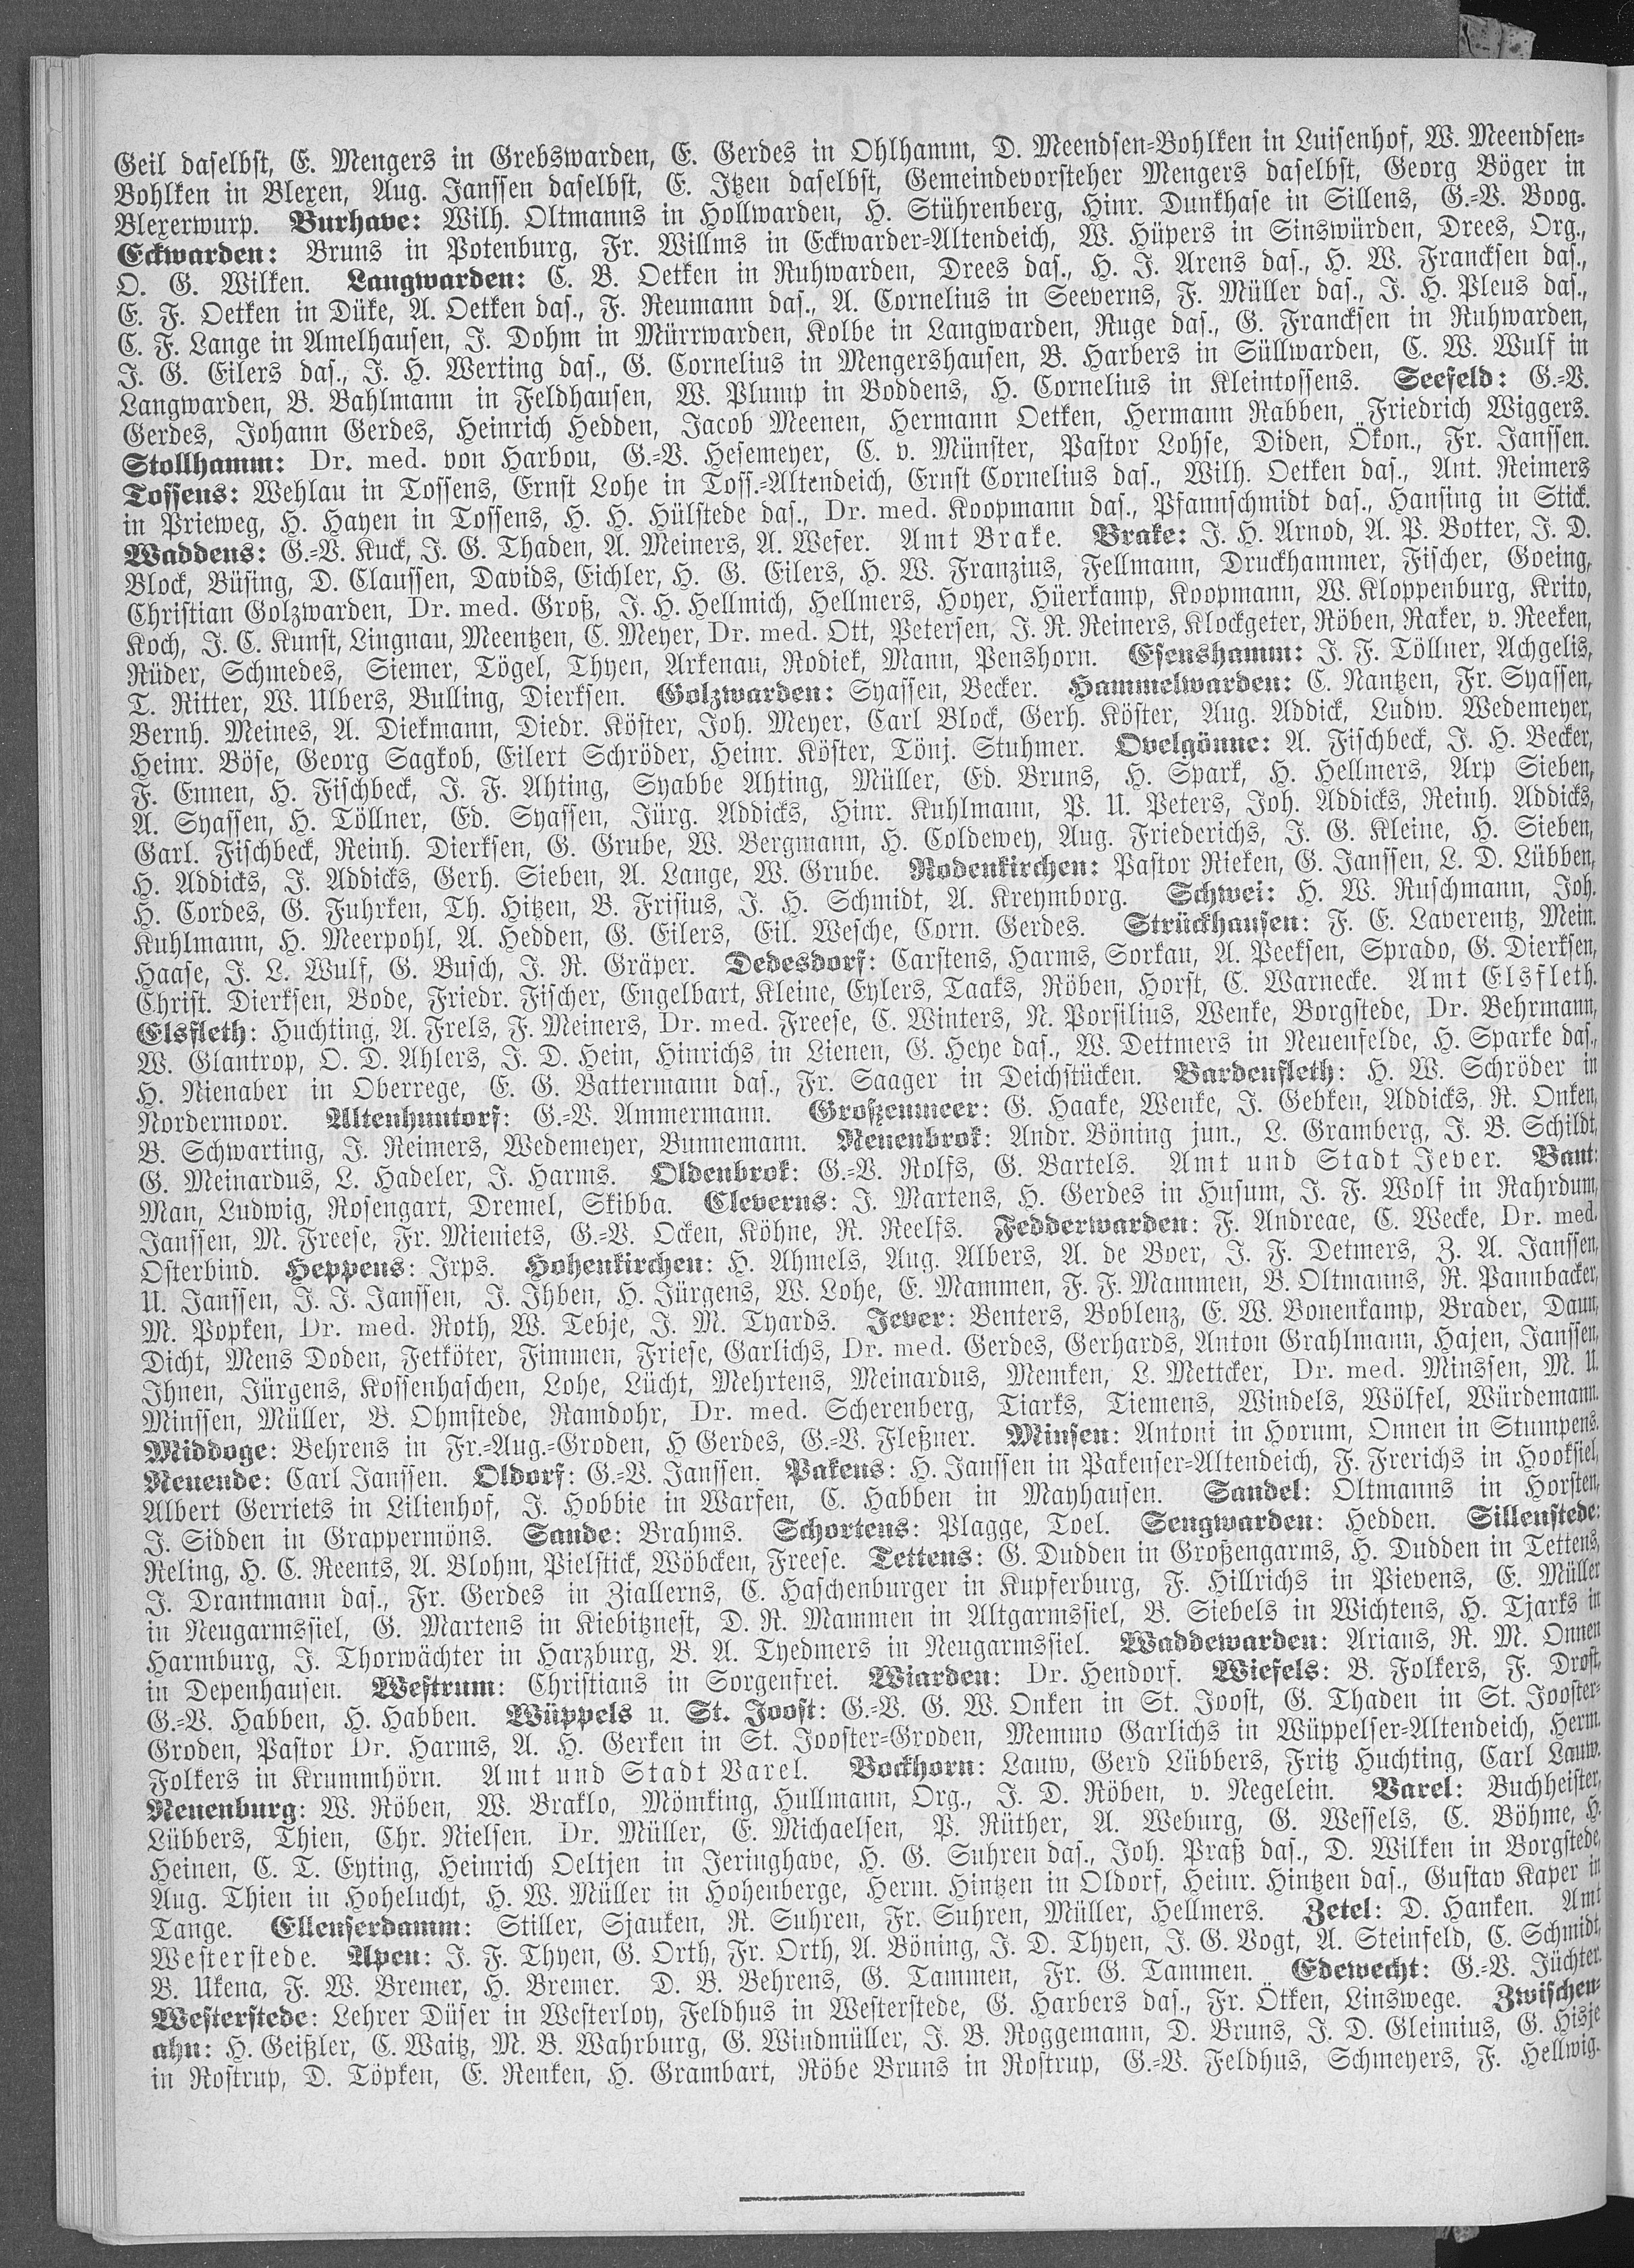 Geil daselbst, E. Mengers in Grebswarden, E. Gerdes in Ohlhamm, D. Meendsen-Bohlken in Luisenhof, W. Meendsen-
Bohlken in Blexen, Aug. Janssen daselbst, E. Itzen daselbst, Gemeindevorsteher Mengers daselbst, Georg Böger in
Blexerwurp. Burhave: Wilh. Oltmanns in Hollwarden, H. Stührenberg, Hinr. Dunkhase in Sillens, G.-V. Boog.
Eckwarden: Bruns in Potenburg, Fr. Willms in Eckwarder-Altendeich, W. Hüpers in Sinswürden, Drees, Org.,
O. G. Wilken. Langwarden: C. B. Oetken in Ruhwarden, Drees das., H. J. Arens das., H. W. Francksen das.,
E. F. Oetken in Düke, A. Oetken das., F. Reumann das., A. Cornelius in Seeverns, F. Müller das., J. H. Pleus das.,
C. F. Lange in Amelhausen, J. Dohm in Mürrwarden, Kolbe in Langwarden, Ruge das., G. Francksen in Ruhwarden,
J. G. Eilers das., J. H. Werting das., G. Cornelius in Mengershausen, B. Harbers in Süllwarden, C. W. Wulf in
Langwarden, B. Bahlmann in Feldhausen, W. Plump in Boddens, H. Cornelius in Kleintossens. Seefeld: G.-V.
Gerdes, Johann Gerdes, Heinrich Hedden, Jacob Meenen, Hermann Oetken, Hermann Rabben, Friedrich Wiggers.
Stollhamm: Dr. med. von Harbou, G.-V. Hesemeyer, C. v. Münster, Pastor Lohse, Diden, Ökon., Fr. Janssen.
Tossens: Wehlau in Tossens, Ernst Lohe in Toss.-Altendeich, Ernst Cornelius das., Wilh. Oetken das., Ant. Reimers
in Prieweg, H. Hayen in Tossens, H. H. Hülstede das., Dr. med. Koopmann das., Pfannschmidt das., Hansing in Stick.
Waddens: G.-V. Kuck, J. G. Thaden, A. Meiners, A. Wefer. Amt Brake. Brake: J. H. Arnod, A. P. Botter, J. D.
Block, Büsing, D. Claussen, Davids, Eichler, H. G. Eilers, H. W. Franzius, Fellmann, Druckhammer, Fischer, Goeing,
Christian Golzwarden, Dr. med. Groß, J. H. Hellmich, Hellmers, Hoyer, Hüerkamp, Koopmann, W. Kloppenburg, Krito,
Koch, J. C. Kunst, Lingnau, Meentzen, C. Meyer, Dr. med. Ott, Petersen, J. R. Reiners, Klockgeter, Röben, Raker, v. Reeken,
Rüder, Schmedes, Siemer, Tögel, Thyen, Arkenau, Rodiek, Mann, Penshorn. Esenshamm: J. F. Töllner, Achgelis,
T. Ritter, W. Ulbers, Bulling, Dierksen. Golzwarden: Syassen, Becker. Hammelwarden: C. Nantzen, Fr. Syassen,
Bernh. Meines, A. Diekmann, Diedr. Köster, Joh. Meyer, Carl Block, Gerh. Köster, Aug. Addick, Ludw. Wedemeyer,
Heinr. Böse, Georg Sagkob, Eilert Schröder, Heinr. Köster, Tönj. Stuhmer. Ovelgönne: A. Fischbeck, J. H. Becker,
F. Ennen, H. Fischbeck, J. F. Ahting, Syabbe Ahting, Müller, Ed. Bruns, H. Spark, H. Hellmers, Arp Sieben,
A. Syassen, H. Töllner, Ed. Syassen, Jürg. Addicks, Hinr. Kuhlmann, P. U. Peters, Joh. Addicks, Reinh. Addicks,
Garl. Fischbeck, Reinh. Dierksen, G. Grube, W. Bergmann, H. Coldewey, Aug. Friederichs, J. G. Kleine, H. Sieben,
H. Addicks, J. Addicks, Gerh. Sieben, A. Lange, W. Grube. Rodenkirchen: Pastor Rieken, G. Janssen, L. D. Lübben,
H. Cordes, G. Fuhrken, Th. Hitzen, B. Frisius, J. H. Schmidt, A. Kreymborg. Schwei: H. W. Ruschmann, Joh.
Kuhlmann, H. Meerpohl, A. Hedden, G. Eilers, Eil. Wesche, Corn. Gerdes. Strückhausen: F. E. Laverentz, Mein.
Haase, J. L. Wulf, G. Busch, J. R. Gräper. Dedesdorf: Carstens, Harms, Sorkau, A. Peeksen, Sprado, G. Dierksen,
Christ. Dierksen, Bode, Friedr. Fischer, Engelbart, Kleine, Eylers, Taaks, Röben, Horst, C. Warnecke. Amt Elsfleth.
Elsfleth: Huchting, A. Frels, F. Meiners, Dr. med. Freese, C. Winters, N. Porsilius, Wenke, Borgstede, Dr. Behrmann,
W. Glantrop, O. D. Ahlers, J. D. Hein, Hinrichs in Lienen, G. Heye das., W. Dettmers in Neuenfelde, H. Sparke das.,
H. Nienaber in Oberrege, E. G. Battermann das., Fr. Saager in Deichstücken. Bardenfleth: H. W. Schröder in
Nordermoor. Altenhuntorf: G.-V. Ammermann. Großenmeer: G. Haake, Wenke, J. Gebken, Addicks, R. Onken,
B. Schwarting, J. Reimers, Wedemeyer, Bunnemann. Neuenbrok: Andr. Böning jun., L. Gramberg, J. B. Schildt,
G. Meinardus, L. Hadeler, J. Harms. Oldenbrok: G.-V. Rolfs, G. Bartels. Amt und Stadt Jever. Bant:
Man, Ludwig, Rosengart, Dremel, Skibba. Cleverns: J. Martens, H. Gerdes in Husum, J. F. Wolf in Rahrdum,
Janssen, M. Freese, Fr. Mieniets, G.-V. Ocken, Köhne, R. Reelfs. Fedderwarden: F. Andreae, C. Wecke, Dr. med.
Osterbind. Heppens: Irps. Hohenkirchen: H. Ahmels, Aug. Albers, A. de Boer, J. F. Detmers, Z. A. Janssen,
U. Janssen, J. J. Janssen, J. Ihben, H. Jürgens, W. Lohe, E. Mammen, F. F. Mammen, B. Oltmanns, R. Pannbacker,
M. Popken, Dr. med. Roth, W. Tebje, J. M. Tyards. Jever: Benters, Boblenz, E. W. Bonenkamp, Brader, Daun,
Dicht, Mens Doden, Fetköter, Fimmen, Friese, Garlichs, Dr. med. Gerdes, Gerhards, Anton Grahlmann, Hajen, Janssen,
Ihnen, Jürgens, Kossenhaschen, Lohe, Lücht, Mehrtens, Meinardus, Memken, L. Mettcker, Dr. med. Minssen, M. U.
Minssen, Müller, B. Ohmstede, Ramdohr, Dr. med. Scherenberg, Tiarks, Tiemens, Windels, Wölfel, Würdemann.
Middoge: Behrens in Fr.-Aug.-Groden, H Gerdes, G.-V. Fleßner. Minsen: Antoni in Horum, Onnen in Stumpens.
Neuende: Carl Janssen. Oldorf: G.-V. Janssen. Pakens: H. Janssen in Pakenser-Altendeich, F. Frerichs in Hooksiel,
Albert Gerriets in Lilienhof, J. Hobbie in Warfen, C. Habben in Mayhausen. Sandel: Oltmanns in Horsten,
J. Sidden in Grappermöns. Sande: Brahms. Schortens: Plagge, Toel. Sengwarden: Hedden. Sillenstede:
Reling, H. C. Reents, A. Blohm, Pielstick, Wöbcken, Freese. Tettens: G. Dudden in Großengarms, H. Dudden in Tettens,
J. Drantmann das., Fr. Gerdes in Ziallerns, C. Haschenburger in Kupferburg, F. Hillrichs in Pievens, E. Müller
in Neugarmssiel, G. Martens in Kiebitznest, D. R. Mammen in Altgarmssiel, B. Siebels in Wichtens, H. Tjarks in
Harmburg, J. Thorwächter in Harzburg, B. A. Tyedmers in Neugarmssiel. Waddewarden: Arians, R. M. Onnen
in Depenhausen. Westrum: Christians in Sorgenfrei. Wiarden: Dr. Hendorf. Wiefels: B. Folkers, F. Drost,
G.-V. Habben, H. Habben. Wüppels u. St. Joost: G.-V. G. W. Onken in St. Joost, G. Thaden in St. Jooster-
Groden, Pastor Dr. Harms, A. H. Gerken in St. Jooster-Groden, Memmo Garlichs in Wüppelser-Altendeich, Herm.
Folkers in Krummhörn. Amt und Stadt Varel. Bockhorn: Lauw, Gerd Lübbers, Fritz Huchting, Carl Lauw.
Neuenburg: W. Röben, W. Braklo, Mömking, Hullmann, Org., J. D. Röben, v. Negelein. Varel: Buchheister,
Lübbers, Thien, Chr. Nielsen, Dr. Müller, E. Michaelsen, P. Rüther, A. Weburg, G. Wessels, C. Böhme, H.
Heinen, C. T. Eyting, Heinrich Oeltjen in Jeringhave, H. G. Suhren das., Joh. Praß das., D. Wilken in Borgstede,
Aug. Thien in Hohelucht, H. W. Müller in Hohenberge, Herm. Hintzen in Oldorf, Heinr. Hintzen das., Gustav Kaper in
Tange. Ellenserdamm: Stiller, Sjauken, R. Suhren, Fr. Suhren, Müller, Hellmers. Zetel: D. Hanken. Amt
Westerstede. Apen: J. F. Thyen, G. Orth, Fr. Orth, A. Böning, J. D. Thyen, J. G. Vogt, A. Steinfeld, C. Schmidt,
B. Ukena, F. W. Bremer, H. Bremer. D. B. Behrens, G. Tammen, Fr. G. Tammen. Edewecht: G.-V. Jüchter.
Westerstede: Lehrer Düser in Westerloy, Feldhus in Westerstede, G. Harbers das., Fr. Ötken, Linswege. Zwischen-
ahn: H. Geißler, C. Waitz, M. B. Wahrburg, G. Windmüller, J. B. Roggemann, D. Bruns, J. D. Gleimius, G. Hisje
in Rostrup, D. Töpken, E. Renken, H. Grambart, Röbe Bruns in Rostrup, G.-V. Feldhus, Schmeyers, F. Hellwig.